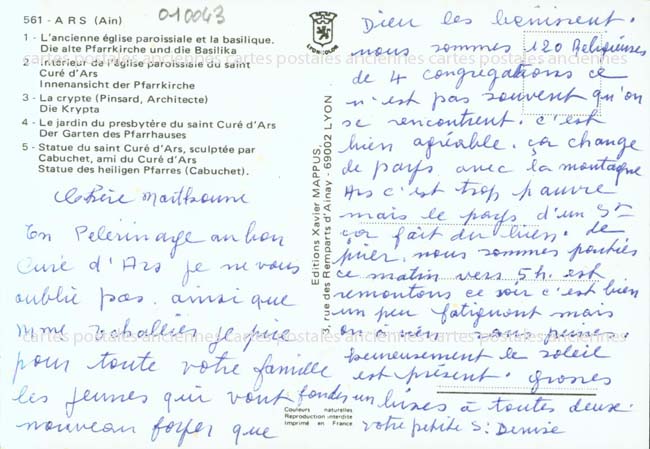 561 - ARS (Ain)
010043
1 - L'ancienne église paroissiale et la basilique.
Die alte Pfarrkirche und die Basilika
2 - Intérieur de l'église paroissiale du saint
Curé d'Ars
Innenansicht der Pfarrkirche
3 - La crypte (Pinsard, Architecte)
Die Krypta
4 - Le jardin du presbytère du saint Curé d'Ars
Der Garten des Pfarrhauses
5 - Statue du saint Curé d'Ars, sculptée par
Cabuchet, ami du Curé d'Ars
Statue des heiligen Pfarres (Cabuchet).
LYONCOLOR
Editions Xavier MAPPUS,
3, rue des Remparts d'Ainay - 69002 LYON
Couleurs naturelles
Reproduction interdite
Imprimé en France
Chère
En Pelerinage au bon
Curé d'Ars je ne vous
oublie pas. ainsi que
Mme je prie
pour toute votre famille
les jeunes qui vont fonder un
nouveau foyer que
Dieu les bénissent.
nous sommes 120 Religieuses
de 4 congregations ce
n'est pas souvent qu'on
se rencontrent. c'est
bien agréable. ça change
de pays avec la montagne
Ars c'est trop pauvre
mais le pays d'un St
ça fait du bien. de
prier. nous sommes parties
ce matin vers 5h. est
remontons ce soir c'est bien
un peu fatiguant mais
on a rien sans peine
heureusement le soleil
est présent. grosses
bises à toutes deux.
votre petite S. Denise
cartes postales anciennes cartes postales anciennes cartes postales anciennes
cartes postales anciennes cartes postales anciennes cartes postales anciennes